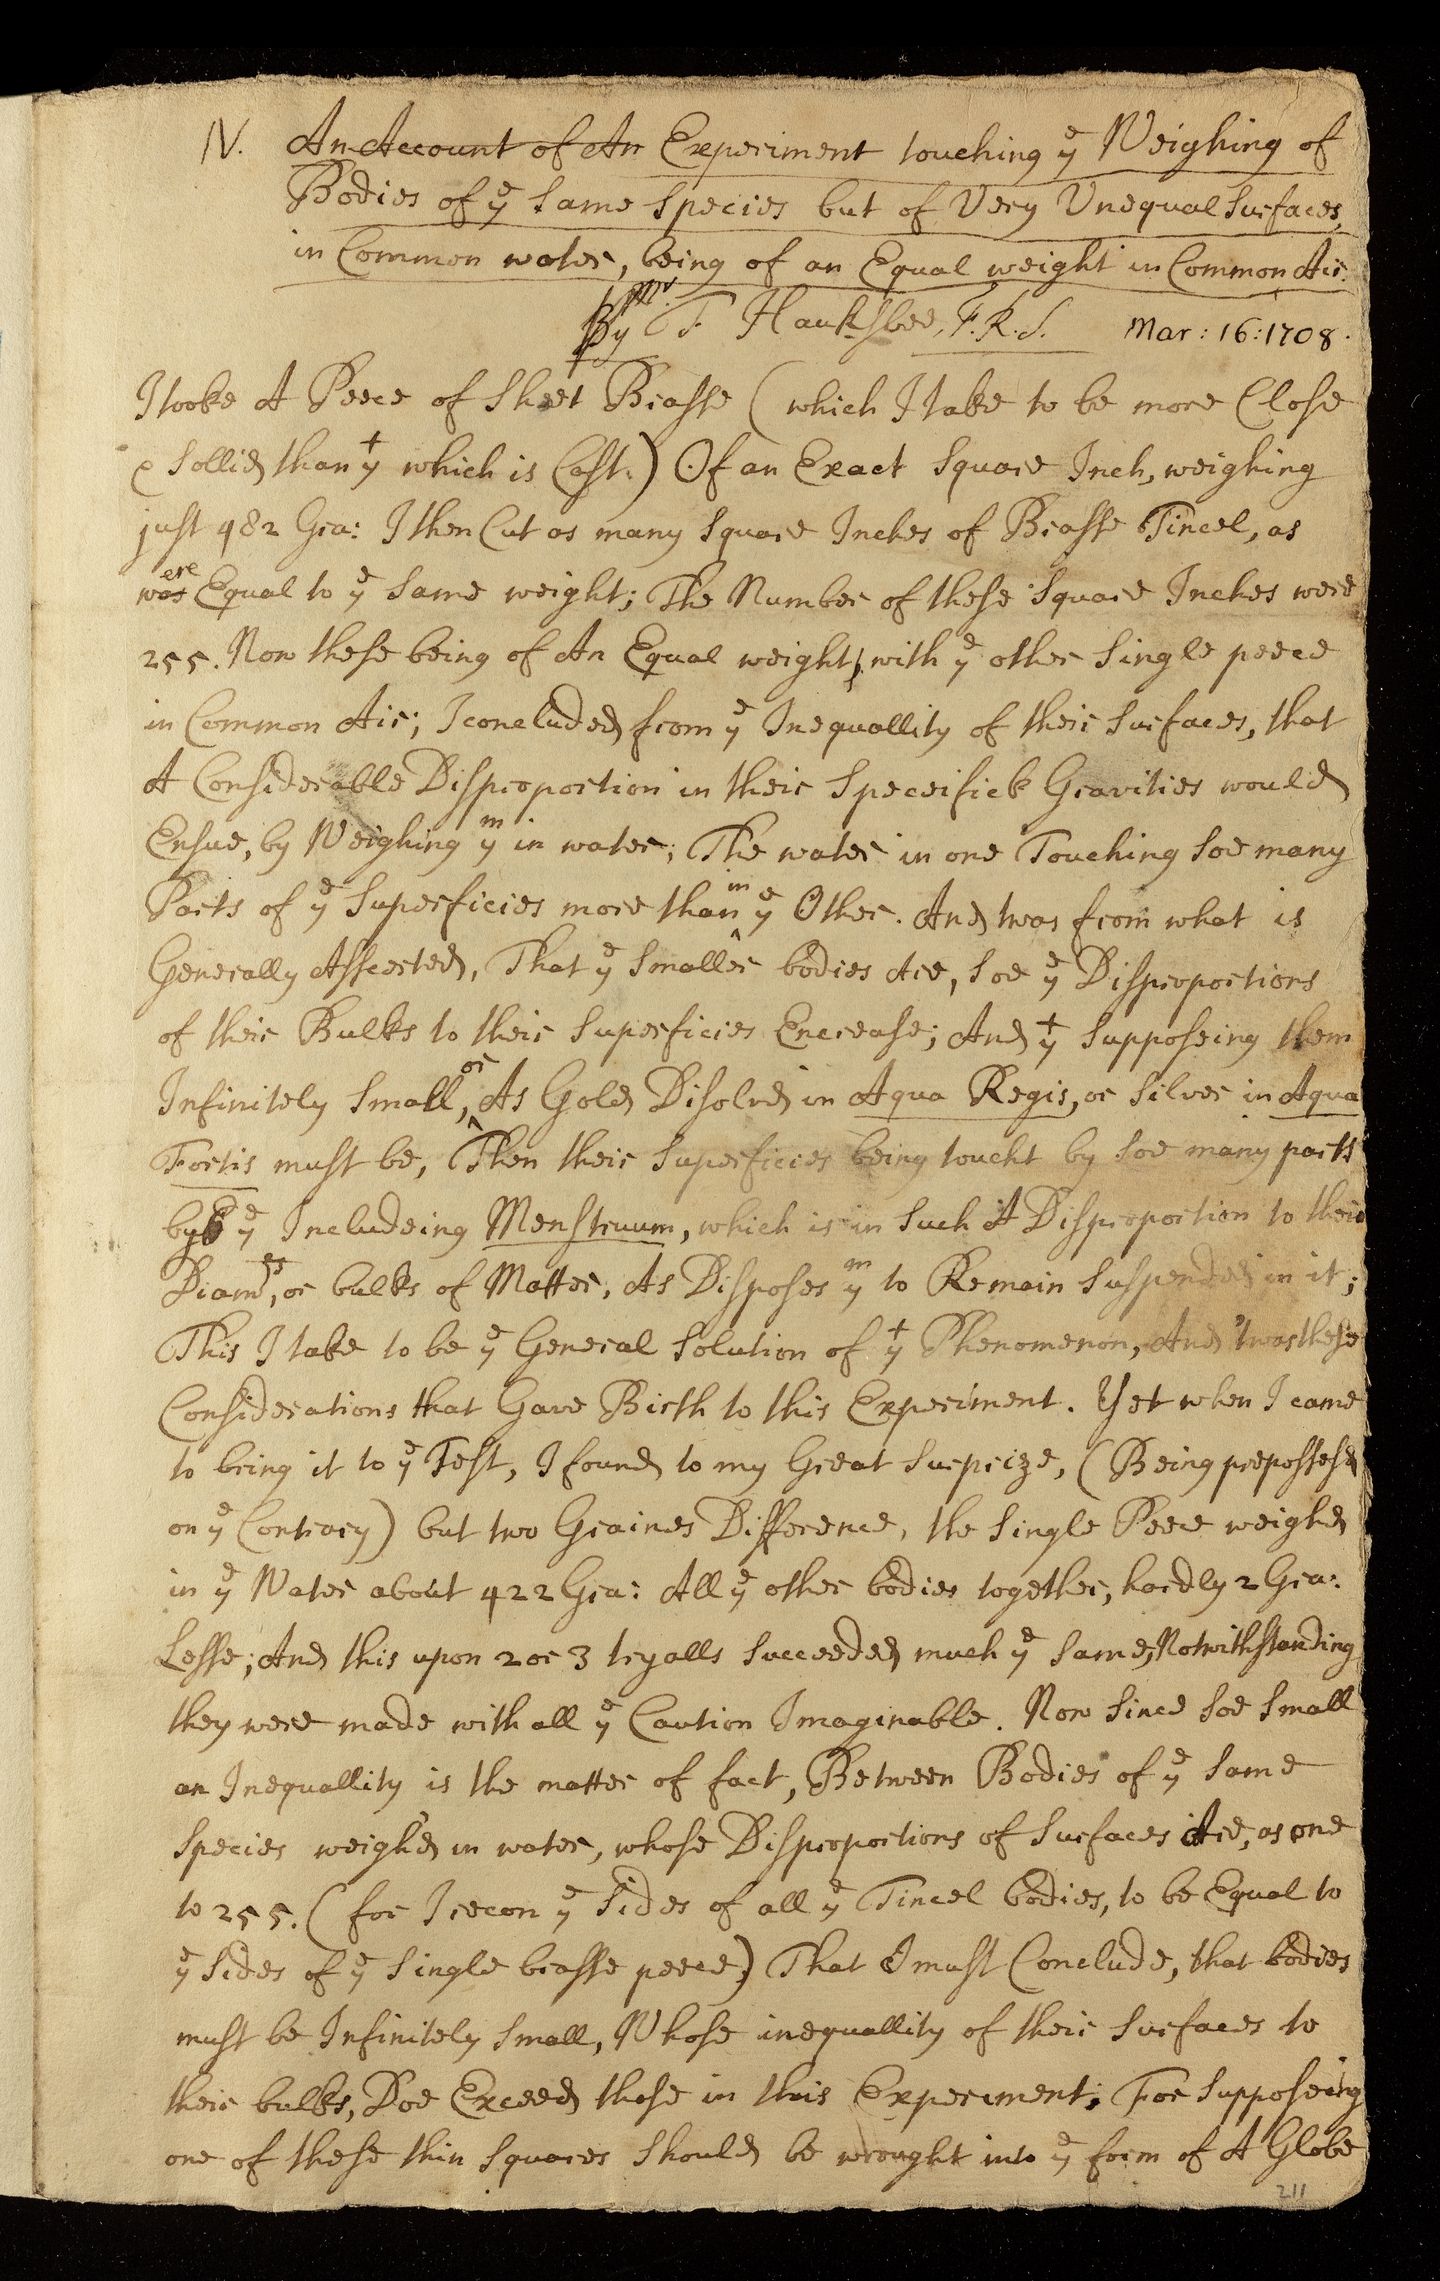 IV. An Account of An Experiment touching ye Weighing of
Bodies of ye same species but of Very Unequal Surfaces,
in Common water, being of an Equal weight in Common Air.
By Mr. F. Hauksbee, F.R.S. Mar: 16: 1708.
I tooke A Peece of Sheet Brasse (which I take to be more Close
& Sollid than yt which is Cast.) Of an Exact Square Inch, weighing
just 482 Gra: I then Cut as many Square Inches of Brasse Tincel, as
was ere Equal to ye same weight; The Number of these Square Inches were
255. Now these being of An Equal weight, with ye other Single peece
in Common Air; I concluded from ye Inequallity of their Surfaces, that
A Considerable Disproportion in their Speceifick Gravities would
Ensue, by Weighing ym in water; The water in one Touching Soe many
Parts of ye Superficies more than in ye Other. And twas from what is
Generally Asserted, That ye Smaller bodies Are, Soe ye Disproportions
of their Bulks to their Superficies Encrease; And yt Supposeing them
Infinitely Small, or As Gold Disolvd in Aqua Regis, or Silver in Aqua
Fortis must be, Then their Superficies being toucht by Soe many parts
by ye Includeing Menstruum, which is in Such A Disproportion to their
Diamtrs, or bulks of Matter, As Disposes ym to Remain Suspended in it;
This I take to be ye General Solution of yt Phenomenon, And 'twas these
Considerations that Gave Birth to this Experiment. Yet when I came
to bring it to ye Test, I found to my Great Surprize, (Being prepossesd
on ye Contrary) but two Graines Difference, the Single Peece weighd
in ye Water about 422 Gra: All ye other bodies together, hardly 2 Gra:
Lesse; And this upon 2 or 3 tryalls Succeeded much ye Same, Notwithstanding
they were made with all ye Caution Imaginable. Now Since Soe Small
an Inequallity is the matter of fact, Between Bodies of ye Same
Species weigh'd in water, whose Disproportions of Surfaces Are, as one
to 255. (for I recon ye Sides of all ye Tincel bodies, to be Equal to
ye Sides of ye Single brasse peece) That I must Conclude, that bodies
must be Infinitely Small, Whose inequallity of their Surfaces to
their bulks, Doe Exceed those in this Experiment; For Supposeing
one of these thin Squares Should be wrought into ye form of A Globe
211